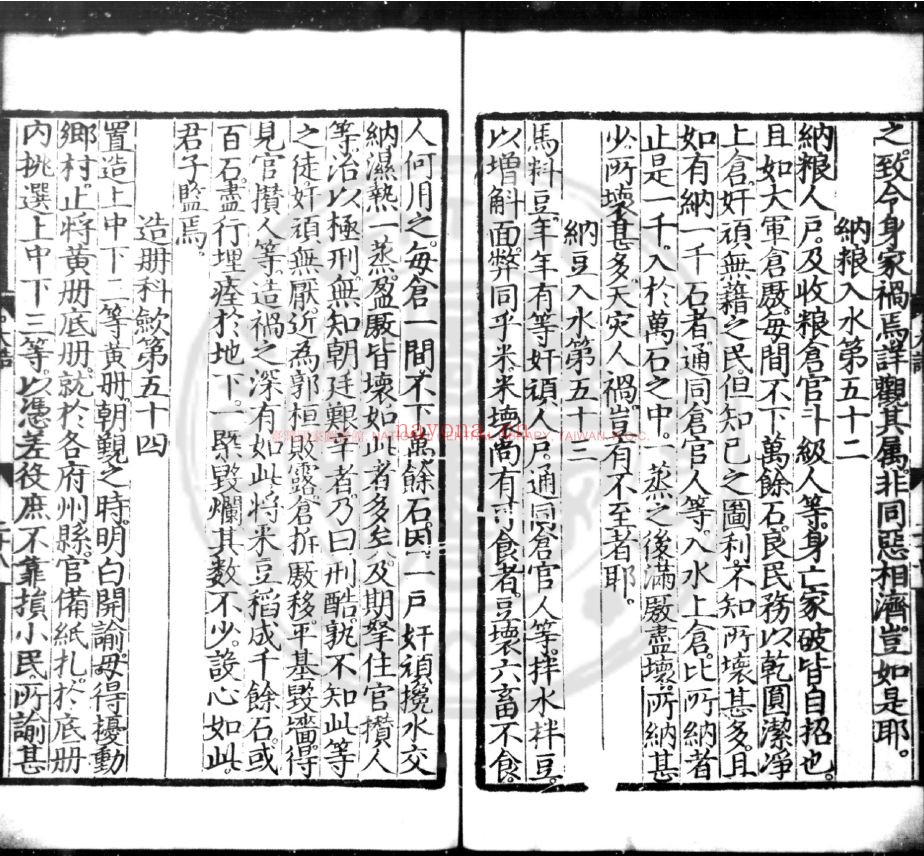 之致令身家禍焉詳觀其属非同惡相濟豈如是耶
納粮入水第五十二
納粮人户及收粮倉官斗級人等身亡家破皆自招也
且如大軍倉廒每間不下萬餘石良民務以乾圓潔淨
上倉奸頑無藉之民但知已之圖利不知所壞甚多且
如有納一千石者通同倉官人等入水上倉比所納者
止是一千入於萬石之中一蒸之後滿廒盡壞所納甚
少所壞甚多天灾人禍豈有不至者耶
納豆入水第五十三
馬料豆年年有等奸頑人户通同倉官人等拌水拌豆
以增斛面弊同乎米米壞尚有可食者豆壞六畜不食
人何用之每倉一間不下萬餘石因一户奸頑攙水交
納濕熱一蒸盈廒皆壞如此者多矣及期拏住官攅人
等治以極刑無知朝廷艱辛者乃曰刑酷孰不知此等
之徒奸頑無厭近為郭桓敗露倉拆廒移平基毀墻得
見官攅人等造禍之深有如此將米豆稻成千餘石或
百石盡行埋瘞於地下一槩毀爛其数不少設心如此
君子監焉
造册科歛第五十四
置造上中下三等黄册朝覲之時明白開諭毋得擾動
鄉村止將黄册底册就於各府州縣官備紙扎於底册
内挑選上中下三等以憑差役庶不靠損小民所諭甚
nayona.cn